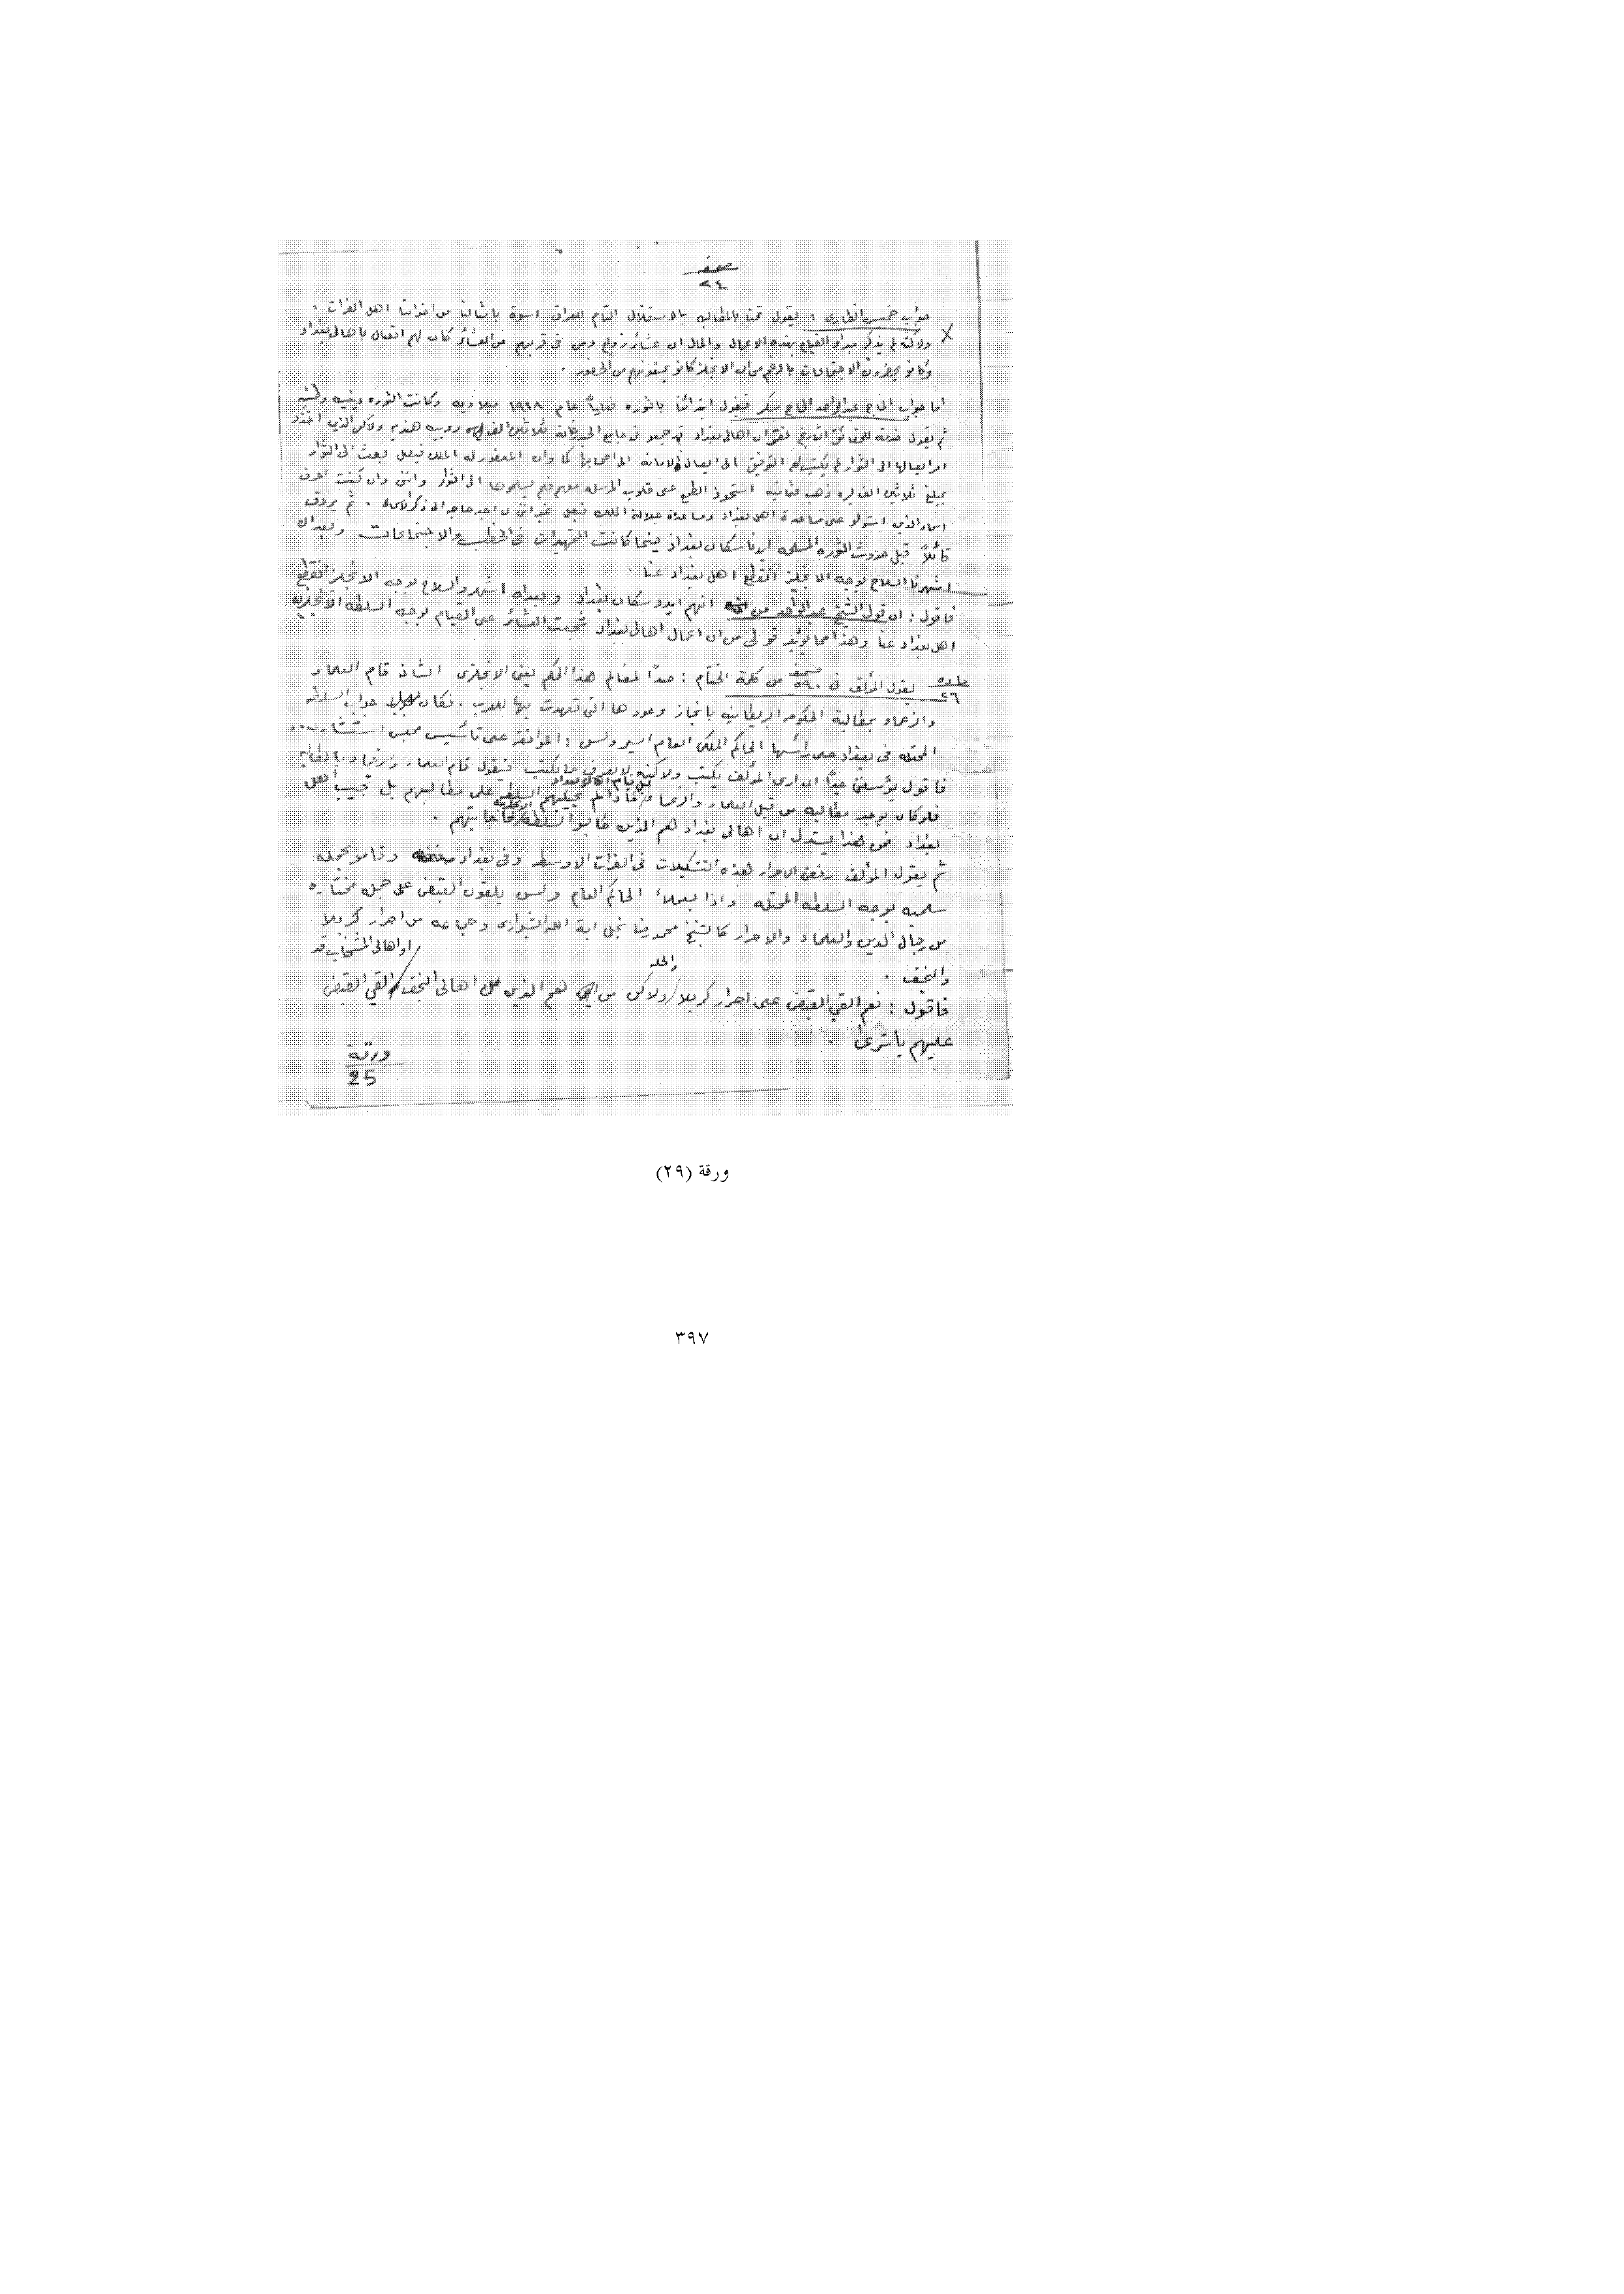 صحيفه
٢٤
جواب خميس الضاري : يقول قمنا بالمطالبه بالاستقلال التام للعراق اسوة بامثالنا من اخواننا اهل الفرات .
ولاكنه لم يذكر مبداء القيام بهذه الاعمال والحال ان عشائر زوبع ومن في قربهم من العشائر كان لهم اتصال باهالي بغداد
وكانو يحضرون الاجتماعات بالرغم من ان الانجليز كانو يمنعونهم من الحضور .
أما جواب الحاج عبد الواحد الحاج سكر فيقول ابتدائنا بالثوره فعلياً عام ١٩١٨ ميلاديه وكانت الثوره دينيه وطنيه
ثم يقول خدمة للحقائق التاريخ ان اهالي بغداد قد جمعو في جامع الحيدرخانة ثلاثين الف روبيه هنديه ولاكن الذي اخذ
امر ايصالها الى الثوار لم يكتب له التوفيق الى ايصال الامانه الى اصحابها كما وان المغفور له الملك فيصل بعث الى الثوار
بمبلغ ثلاثين الف ليره ذهب عثمانيه استحوذ الطمع على قلوب المرسله معهم فلم يسلموها الى الثوار وانني وان كنت اعرف
اسماء الذين استولو على مساعدة اهل بغداد ومساعدة جلالة الملك فيصل غير انني لا اجد حاجه الى ذكر اسماء . ثم يردف
قائلاً قبل حدوث الثوره المسلحه ايدنا سكان بغداد حينما كانت التمهيدات في الخطب والاجتماعات وبعد ان
اشهرنا السلاح بوجه الانجليز انقطع اهل بغداد عنا .
فاقول : ان قول الشيخ عبد الواحد من انهم ايدو سكان بغداد وبعد ان اشهرو السلاح بوجه الانجليز انقطع
اهل بغداد عنا وهذا مما يؤيد قولي من ان اعمال اهالي بغداد شجعت العشائر على القيام بوجه السلطه الانجليزيه
ماده ٢٦ يقول المؤلف في صحيفه ٥٩٠ من كلمة الختام : صداً لمظالم هذا الحكم يعني الانجليزي الشاذ قام العلماء
والزعماء بمطالبة الحكومه البريطانيه بانجاز وعودها التي تعهدت بها للعرب . فكان جواب السلطه
المحتله في بغداد على رأسها الحاكم الملكي العام السير ولسن : الموافقة على تأسيس مجلس استشاري ...
فاقول يؤسفني جداً ان ارى المؤلف يكتب ولاكنه لا يعرف ما يكتب فيقول قام العلماء والزعماء بالمطالبه
فلو كان يوجد مطالبه من قبل العلماء والزعماء قبل قيام اهالي بغداد لماذا لم تجيبهم السلطه على مطاليبهم بل تجيب اهل
بغداد فمن هذا يستدل ان اهالي بغداد هم الذين طالبو السلطه الانجليزيه فاجابتهم .
ثم يقول المؤلف رفض الاحرار هذه التشكيلات في الفرات الاوسط وفي بغداد وقامو بحمله
سلميه بوجه السلطه المحتله واذا بعملاء الحاكم العام ولسن يلقون القبض على جمله مختاره
من رجال الدين والعلماء والاحرار كالشيخ محمد رضا نجل اية الله الشيرازي وجماعه من احرار كربلا
والنجف .
فاقول : نعم القي القبض على احرار كربلا والحله ولاكن من هم الذين من اهالي النجف او اهالي المشخاب قد القي القبض
عليهم يا ترى .
ورقة
25
ورقة (٢٩)
٣٩٧